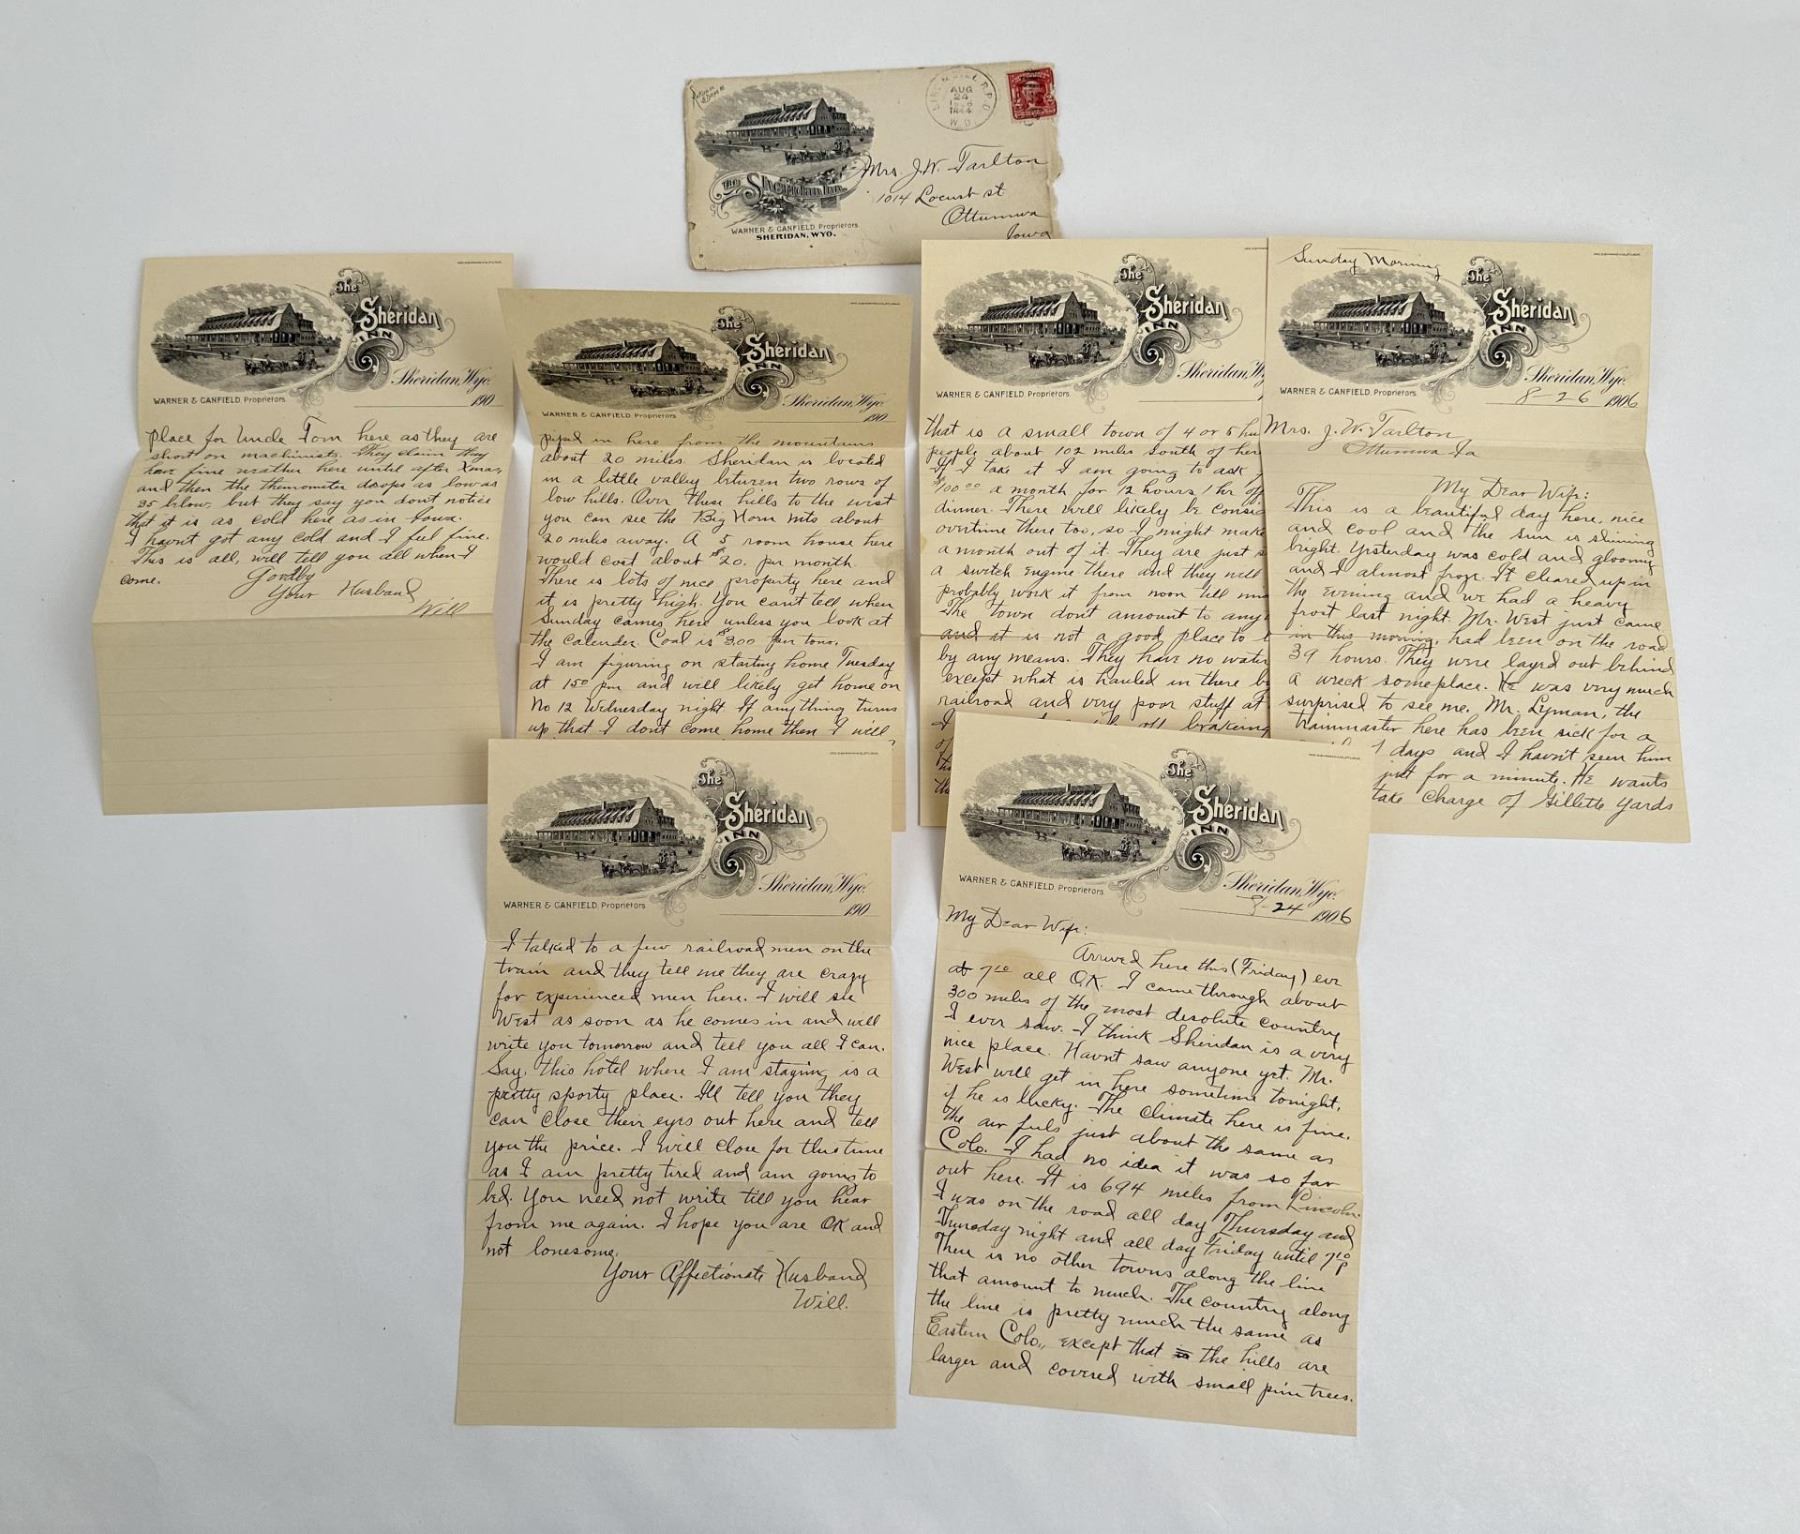 AUG
24
1906
The Sheridan Inn
WARNER & CANFIELD, Proprietors
SHERIDAN, WYO.
Mrs J.W. Tarlton
1014 Locust st
Ottumwa
Iowa
The
Sheridan
INN
WARNER & CANFIELD, Proprietors
Sheridan, Wyo.
190
place for Uncle Tom here as they are
short on machinists. They claim they
have fine weather here until after Xmas
and then the themometer drops as low as
35 below, but they say you dont notice
that it is as cold here as in Iowa.
I havnt got any cold and I feel fine.
This is all, will tell you all when I
come.
Goodby
Your Husband
Will
The
Sheridan
INN
WARNER & CANFIELD, Proprietors
Sheridan, Wyo.
190
piped in here from the mountains
about 20 miles. Sheridan is located
in a little valley between two rows of
low hills. Over these hills to the west
you can see the Big Horn mts about
20 miles away. A 5 room house here
would cost about $20. per month.
There is lots of nice property here and
it is pretty high. You cant tell when
Sunday comes here unless you look at
the calender. Coal is $3.00 per ton.
I am figuring on starting home Tuesday
at 1 50 pm and will likely get home on
No 12 Wednesday night. If anything turns
up that I dont come home then I will
The
Sheridan
INN
WARNER & CANFIELD, Proprietors
Sheridan, Wy
that is a small town of 4 or 5 hu
people about 102 miles south of her
If I take it I am going to ask
$100.00 a month for 12 hours, 1 hr off
dinner. There will likely be consid
overtime there too, so I might make
a month out of it. They are just
a switch engine there and they will
probably work it from noon till
The town dont amount to any
and it is not a good place to
by any means. They have no water
except what is hauled in there b
railroad and very poor stuff at
off braking
Sunday Morning
The
Sheridan
INN
WARNER & CANFIELD, Proprietors
Sheridan, Wyo.
8-26 1906
Mrs. J. W. Tarlton
Ottumwa Ia
My Dear Wife:
This is a beautiful day here, nice
and cool and the sun is shining
bright. Yesterday was cold and gloomy
and I almost froze. It cleared up in
the evening and we had a heavy
frost last night. Mr. West just came
in this morning, had been on the road
39 hours. They were layed out behind
a wreck someplace. He was very much
surprised to see me. Mr. Lyman, the
trainmaster here has been sick for a
days and I havnt seen him
just for a minute. He wants
take charge of Gillette yards
The
Sheridan
INN
WARNER & CANFIELD, Proprietors
Sheridan, Wyo.
190
I talked to a few railroad men on the
train and they tell me they are crazy
for experienced men here. I will see
West as soon as he comes in and will
write you tomorrow and tell you all I can.
Say, this hotel where I am staying is a
pretty sporty place. Ill tell you they
can close their eyes out here and tell
you the price. I will close for this time
as I am pretty tired and am going to
bed. You need not write till you hear
from me again. I hope you are OK and
not lonesome.
Your Affectionate Husband
Will.
The
Sheridan
INN
WARNER & CANFIELD, Proprietors
Sheridan, Wyo.
8-24 1906
My Dear Wife:
Arrived here this (Friday) eve
at 7 20 all OK. I came through about
300 miles of the most desolute country
I ever saw. I think Sheridan is a very
nice place. Havnt saw anyone yet. Mr.
West will get in here sometime tonight,
if he is lucky. The climate here is fine.
The air feels just about the same as
Colo. I had no idea it was so far
out here. It is 694 miles from Lincoln.
I was on the road all day Thursday and
Thursday night and all day Friday until 7 20 P
There is no other towns along the line
that amount to much. The country along
the line is pretty much the same as
Eastern Colo., except that the hills are
larger and covered with small pine trees.